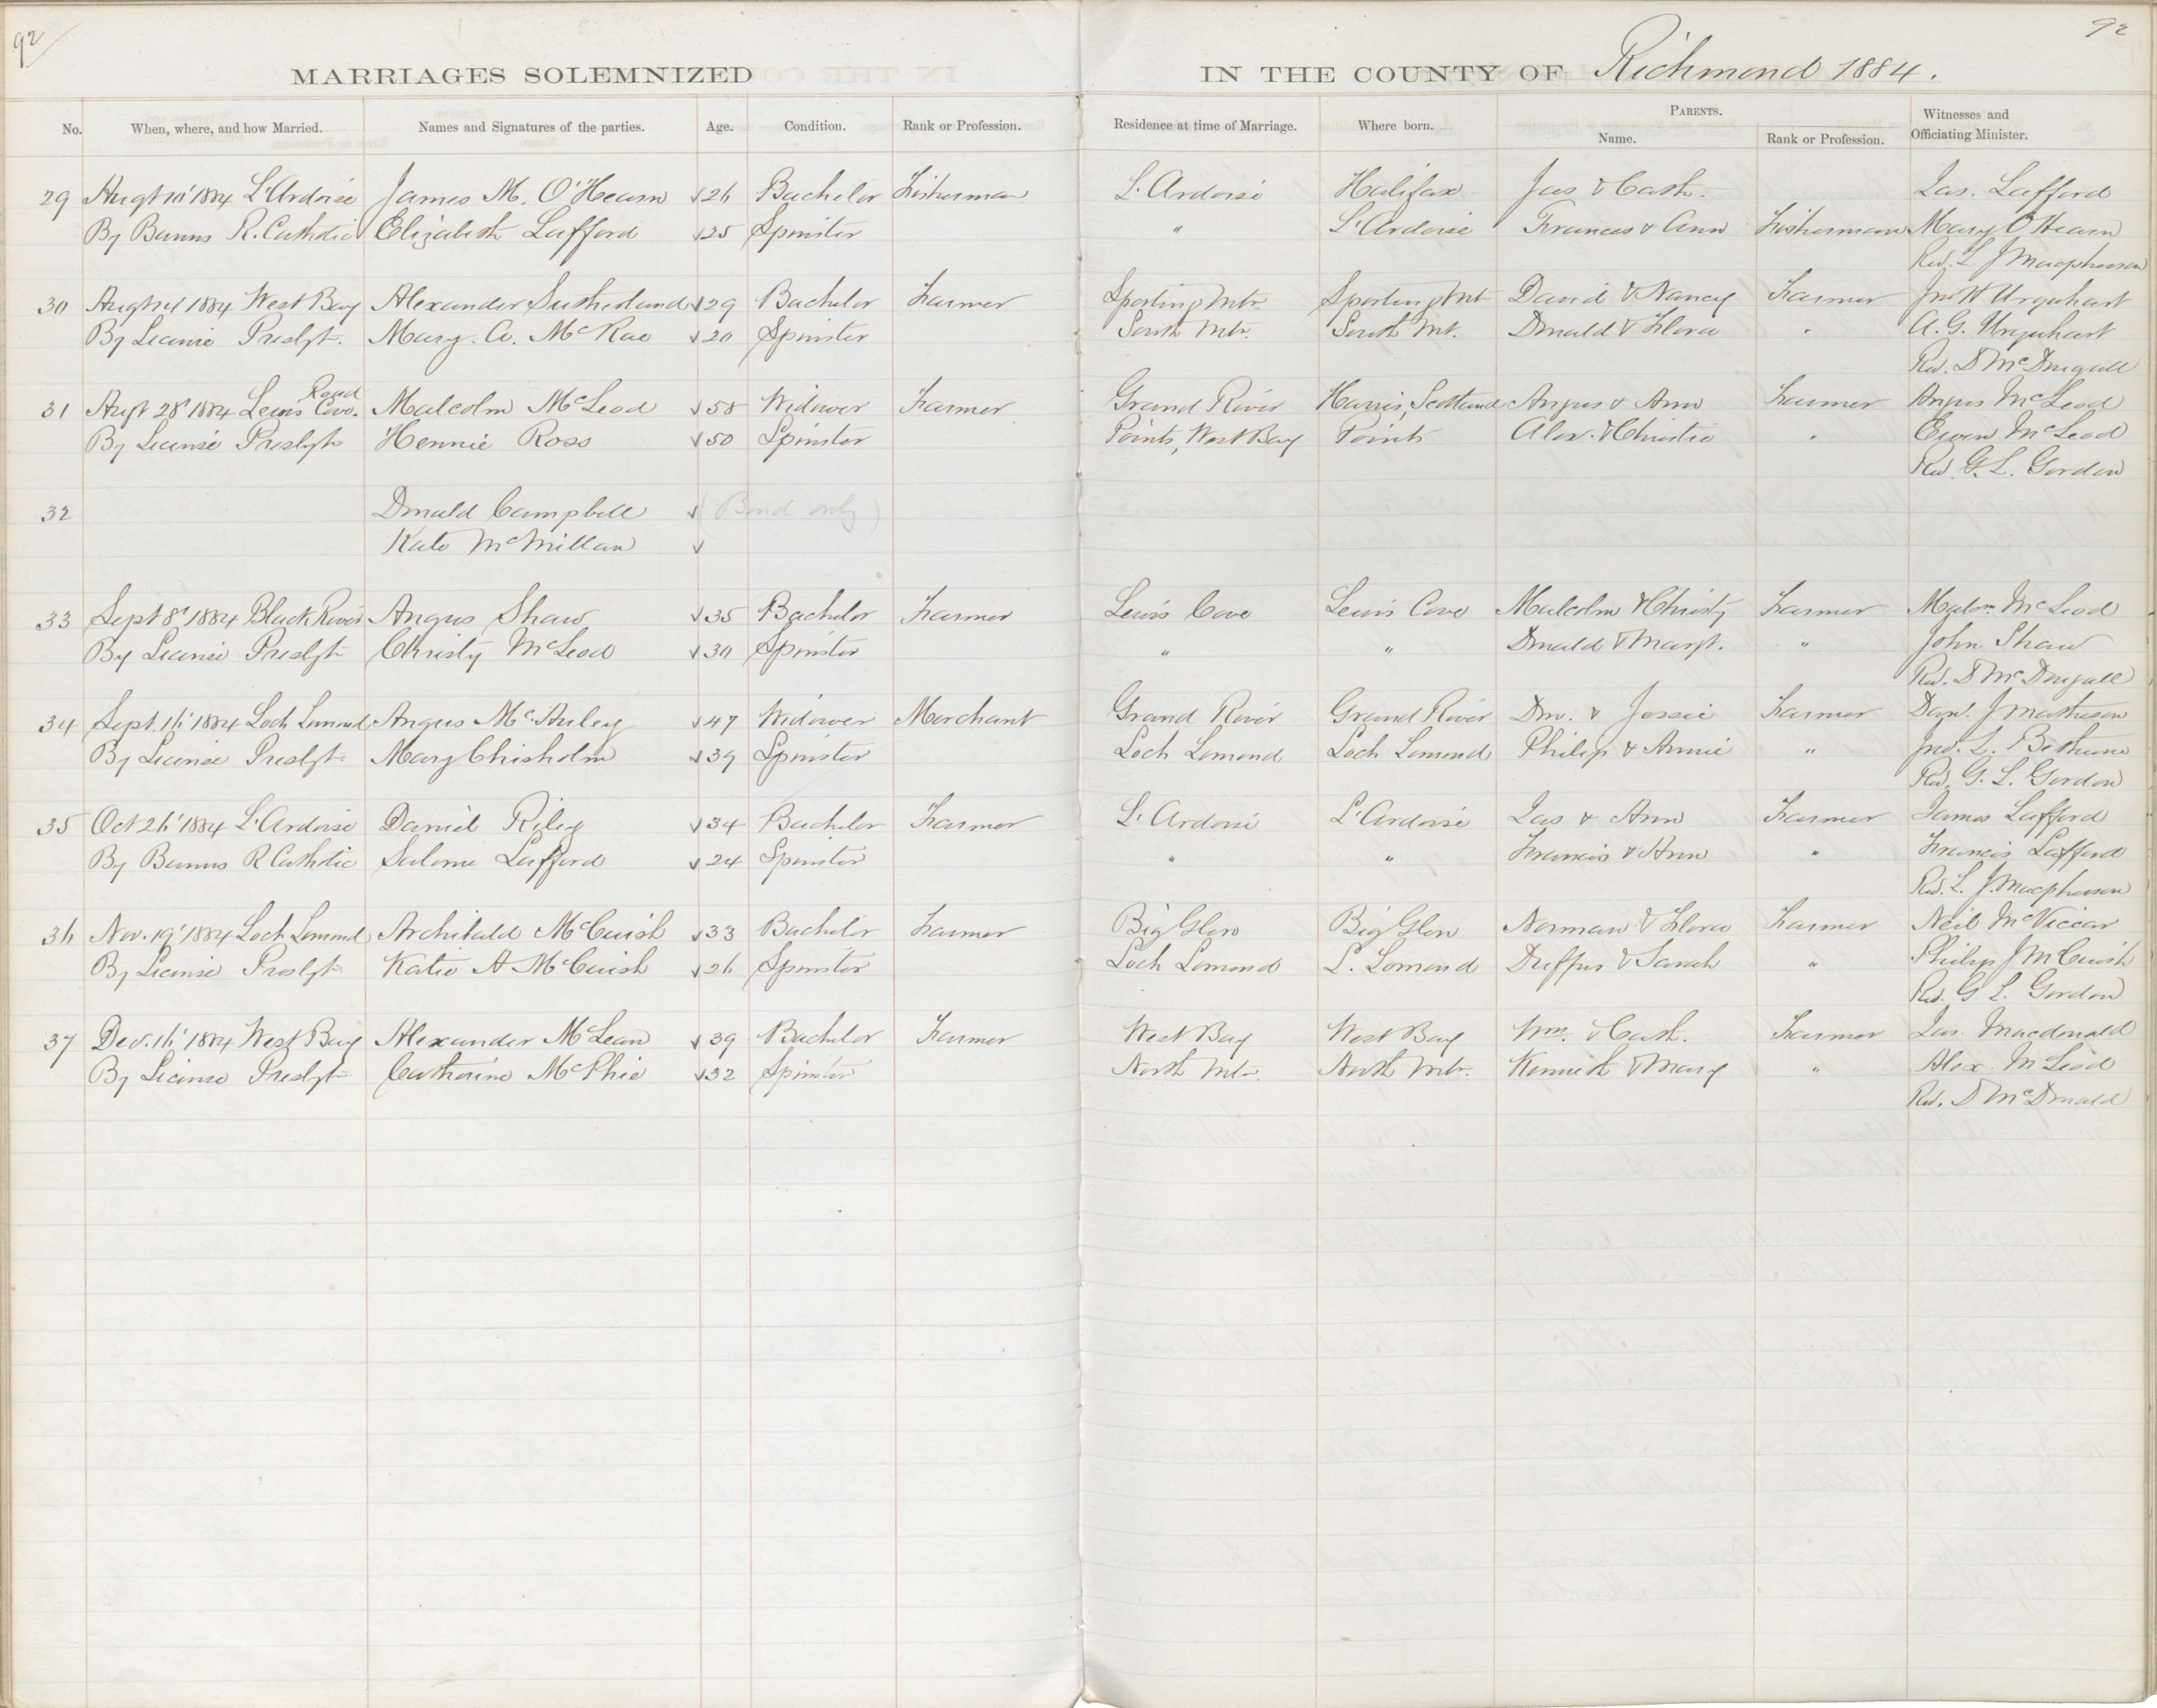 92
92
MARRIAGES SOLEMNIZED IN THE COUNTY OF Richmond 1884.
No. When, where, and how Married. Names and Signatures of the parties. Age. Condition. Rank or Profession. Residence at time of Marriage. Where born. PARENTS. Name. Rank or Profession. Witnesses and Officiating Minister.
29 Augt 1884 L'Ardoise James M. O'Hearn √26 Bachelor Fisherman L'Ardoise Halifax Jas & Cath. Jas. Lafford
By Banns R. Catholic Elizabeth Lafford √25 Spinster " L'Ardoise Frances & Ann Fisherman Mary O'Hearn
Rev. L. J Macpherson
30 Augt 14 1884 West Bay Alexander Sutherland √29 Bachelor Farmer Sporting Mtn. Sporting Mt David & Nancy Farmer Jno H Urquhart
By License Presbyt. Mary. A. McRae √20 Spinster South Mtn. South Mt. Donald & Flora " A. G. Urquhart
Rev. D McDougall
31 Augt 28' 1884 Lewis Cove Road. Malcolm McLeod √58 Widower Farmer Grand River Harris, Scotland Angus & Ann Farmer Angus McLeod
By License Presbyt Hennie Ross √50 Spinster Points, West Bay Points Alex. & Christie " Ewen McLeod
Rev. G. L. Gordon
32 Donald Campbell √ (Bond only)
Kate McMillan √
33 Sept 8' 1884 Black River Angus Shaw √35 Bachelor Farmer Lewis Cove Lewis Cove Malcolm & Christy Farmer Malcm McLeod
By License Presbyt Christy McLeod √30 Spinster " " Donald & Margt. " John Shaw
Rev. D McDougall
34 Sept. 16' 1884 Loch Lomond Angus McAuley √47 Widower Merchant Grand River Grand River Dn. & Jessie Farmer Danl. J Matheson
By License Presbyt Mary Chisholm √39 Spinster Loch Lomond Loch Lomond Philip & Annie " Jno. L. Bethune
Rev. G. L. Gordon
35 Oct 26' 1884 L'Ardoise Daniel Riley √34 Bachelor Farmer L'Ardoise L'Ardoise Jas & Ann Farmer James Lafford
By Banns R Catholic Salome Lafford √24 Spinster " " Francis & Ann " Francis Lafford
Rev. L. J. Macpherson
36 Nov. 19' 1884 Loch Lomond Archibald McCuish √33 Bachelor Farmer Big Glen Big Glen Norman & Flora Farmer Neil McViccar
By License Presbyt. Katie A McCuish √26 Spinster Loch Lomond L. Lomond Duffus & Sarah " Philip J McCuish
Rev. G. L. Gordon
37 Dec. 16' 1884 West Bay Alexander McLean √39 Bachelor Farmer West Bay West Bay Wm. & Cath. Farmer Jas. Macdonald
By License Presbyt Catherine McPhie √32 Spinster North Mtn. North Mtn. Kenneth & Mary " Alex. McLeod
Rev. D McDonald